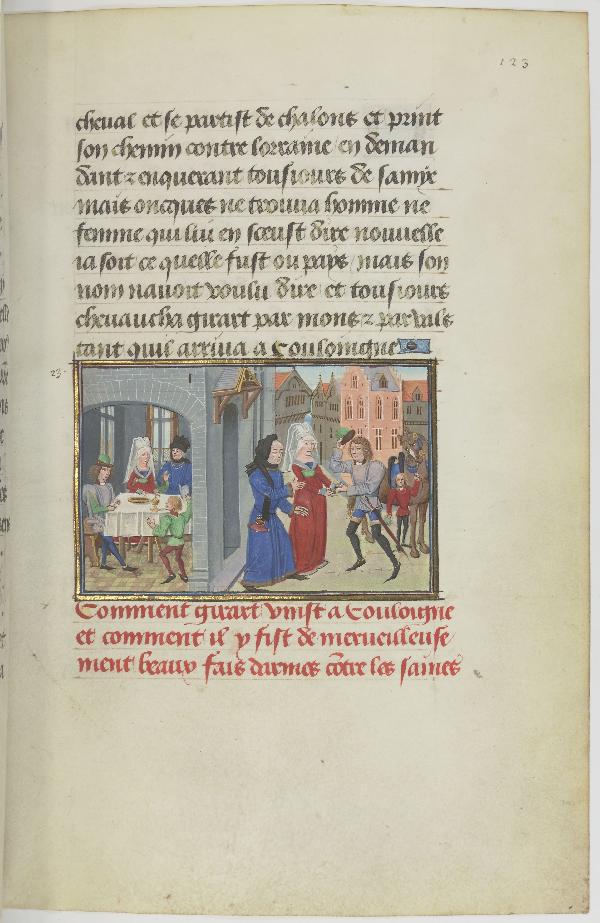 123
cheual et se partist de chalons et print
son chemin contre lorraine en deman
dant & enquerant tousiours de samye
mais oncques ne trouua homme ne
femme qui luy en sceust dire nouuelle
ia soit ce quelle fust ou pays mais son
nom nauoit voulu dire et tousiours
cheuaucha girart par mons & par vals
tant quil arriua a Couloingne
23
Comment girart vinst a Couloigne
et comment il y fist de merueilleuse
ment beaux fais darmes cõtre les saines